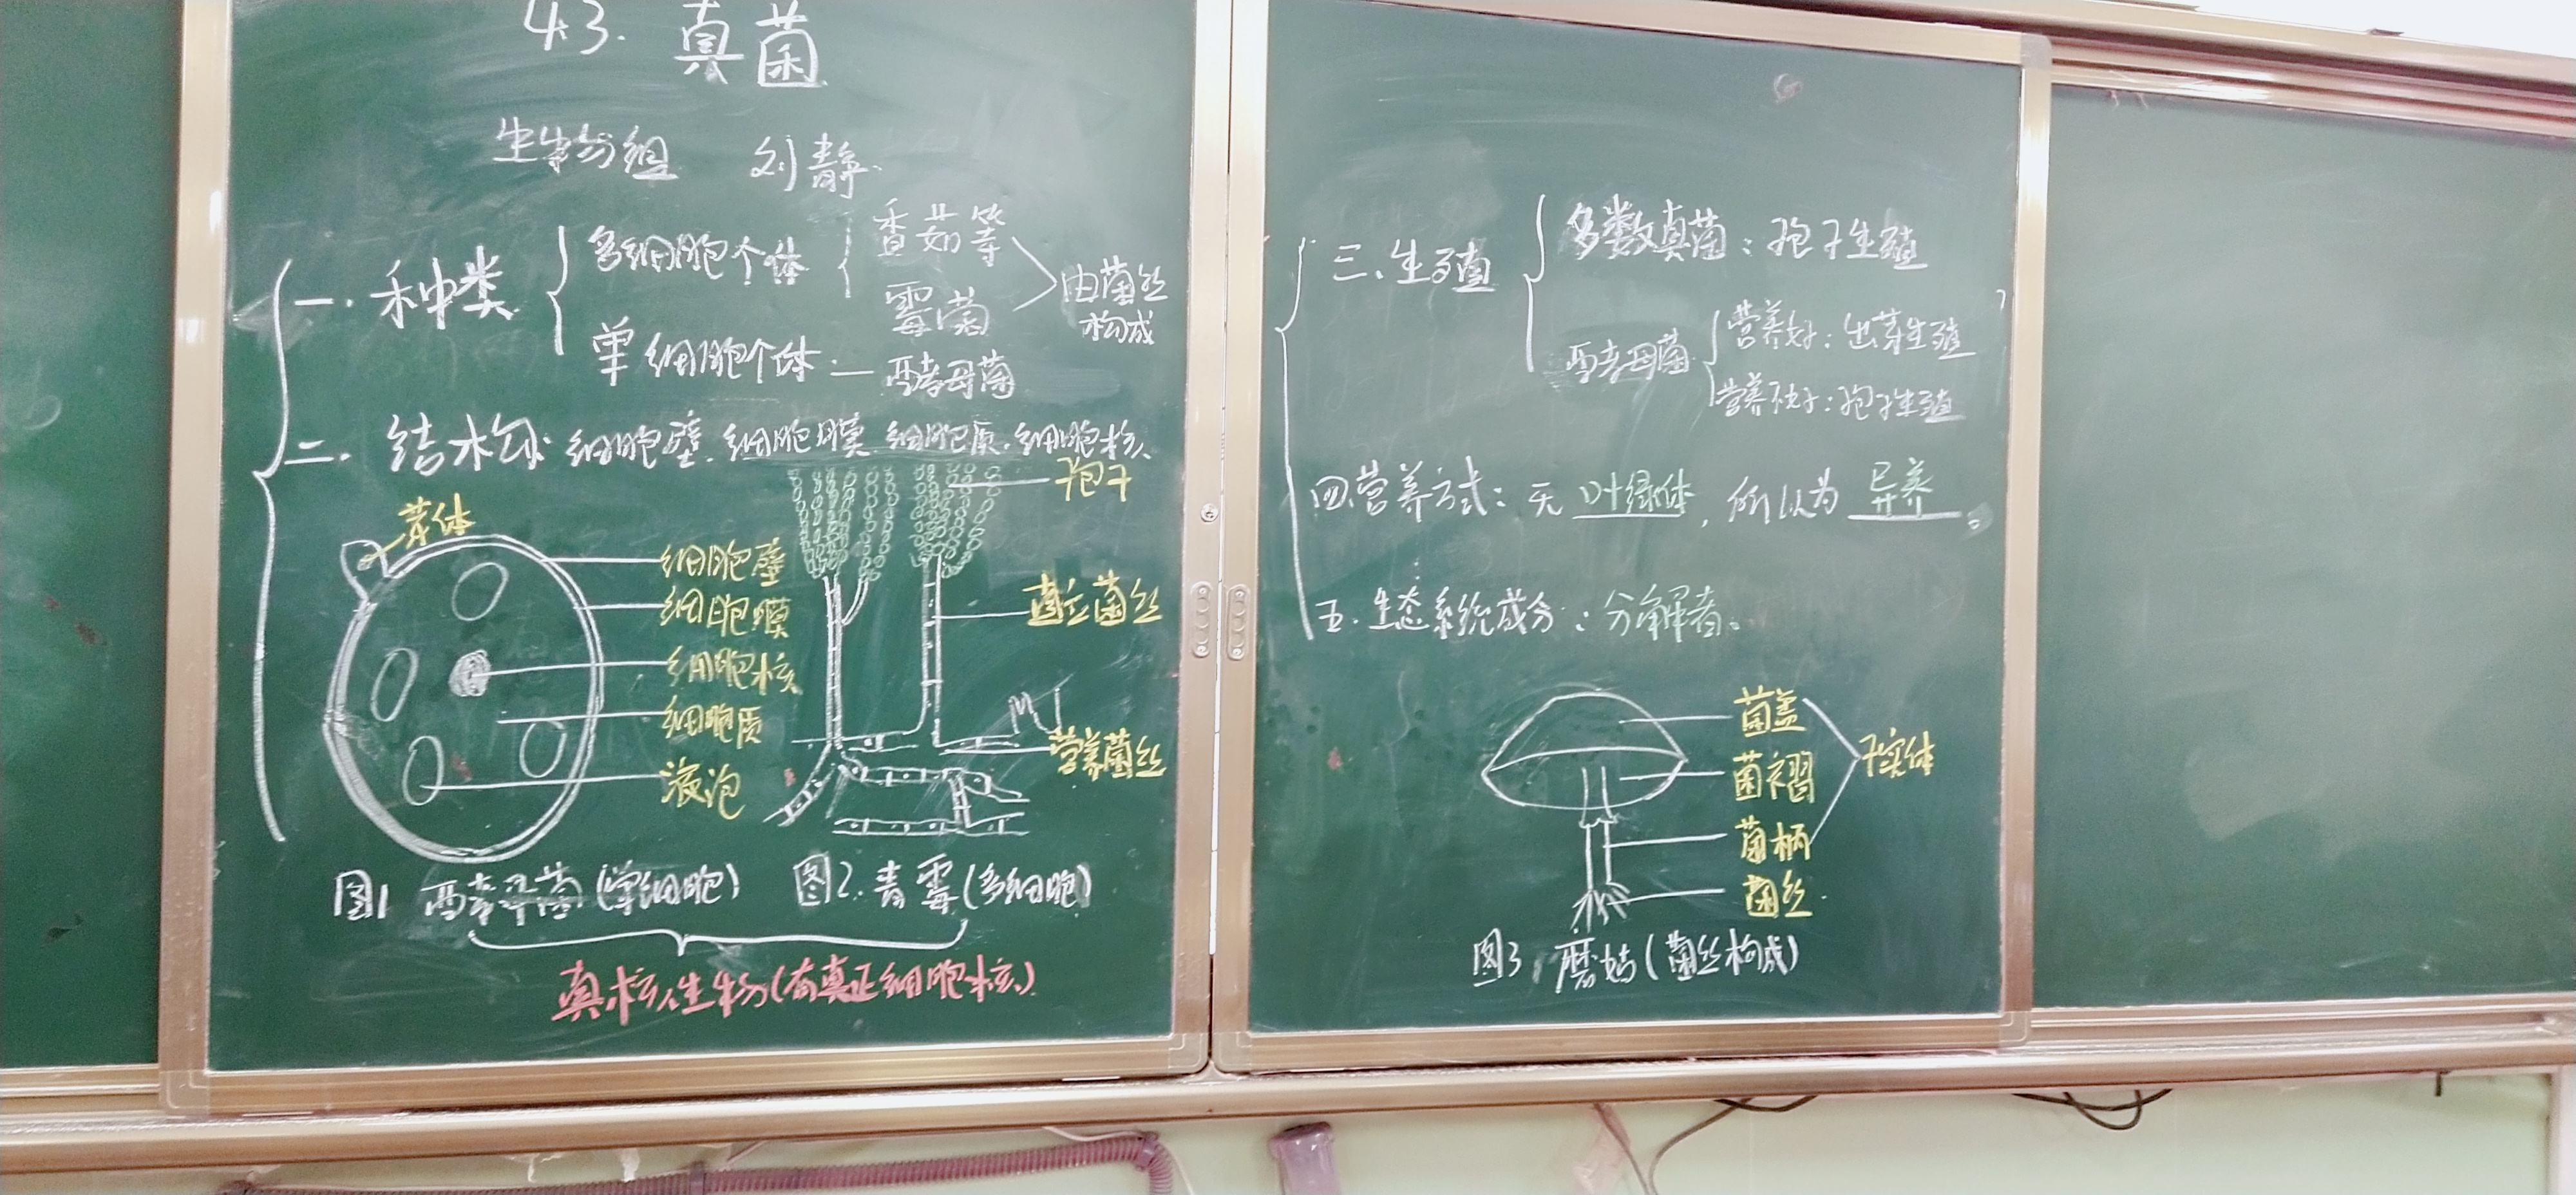 4.3. 真菌
生物组 刘静
一. 种类
多细胞个体
香菇等
霉菌
由菌丝
构成
单细胞个体 — 酵母菌
二. 结构: 细胞壁. 细胞膜 细胞质. 细胞核
芽体
细胞壁
细胞膜
细胞核
细胞质
液泡
孢子
直立菌丝
营养菌丝
图1 酵母菌(单细胞)
图2. 青霉(多细胞)
真核生物(有真正细胞核)
三. 生殖
多数真菌: 孢子生殖
酵母菌
营养好: 出芽生殖
营养不好: 孢子生殖
四. 营养方式: 无 叶绿体, 所以为 异养。
五. 生态系统成分: 分解者。
菌盖
菌褶
菌柄
菌丝
子实体
图3. 蘑菇(菌丝构成)